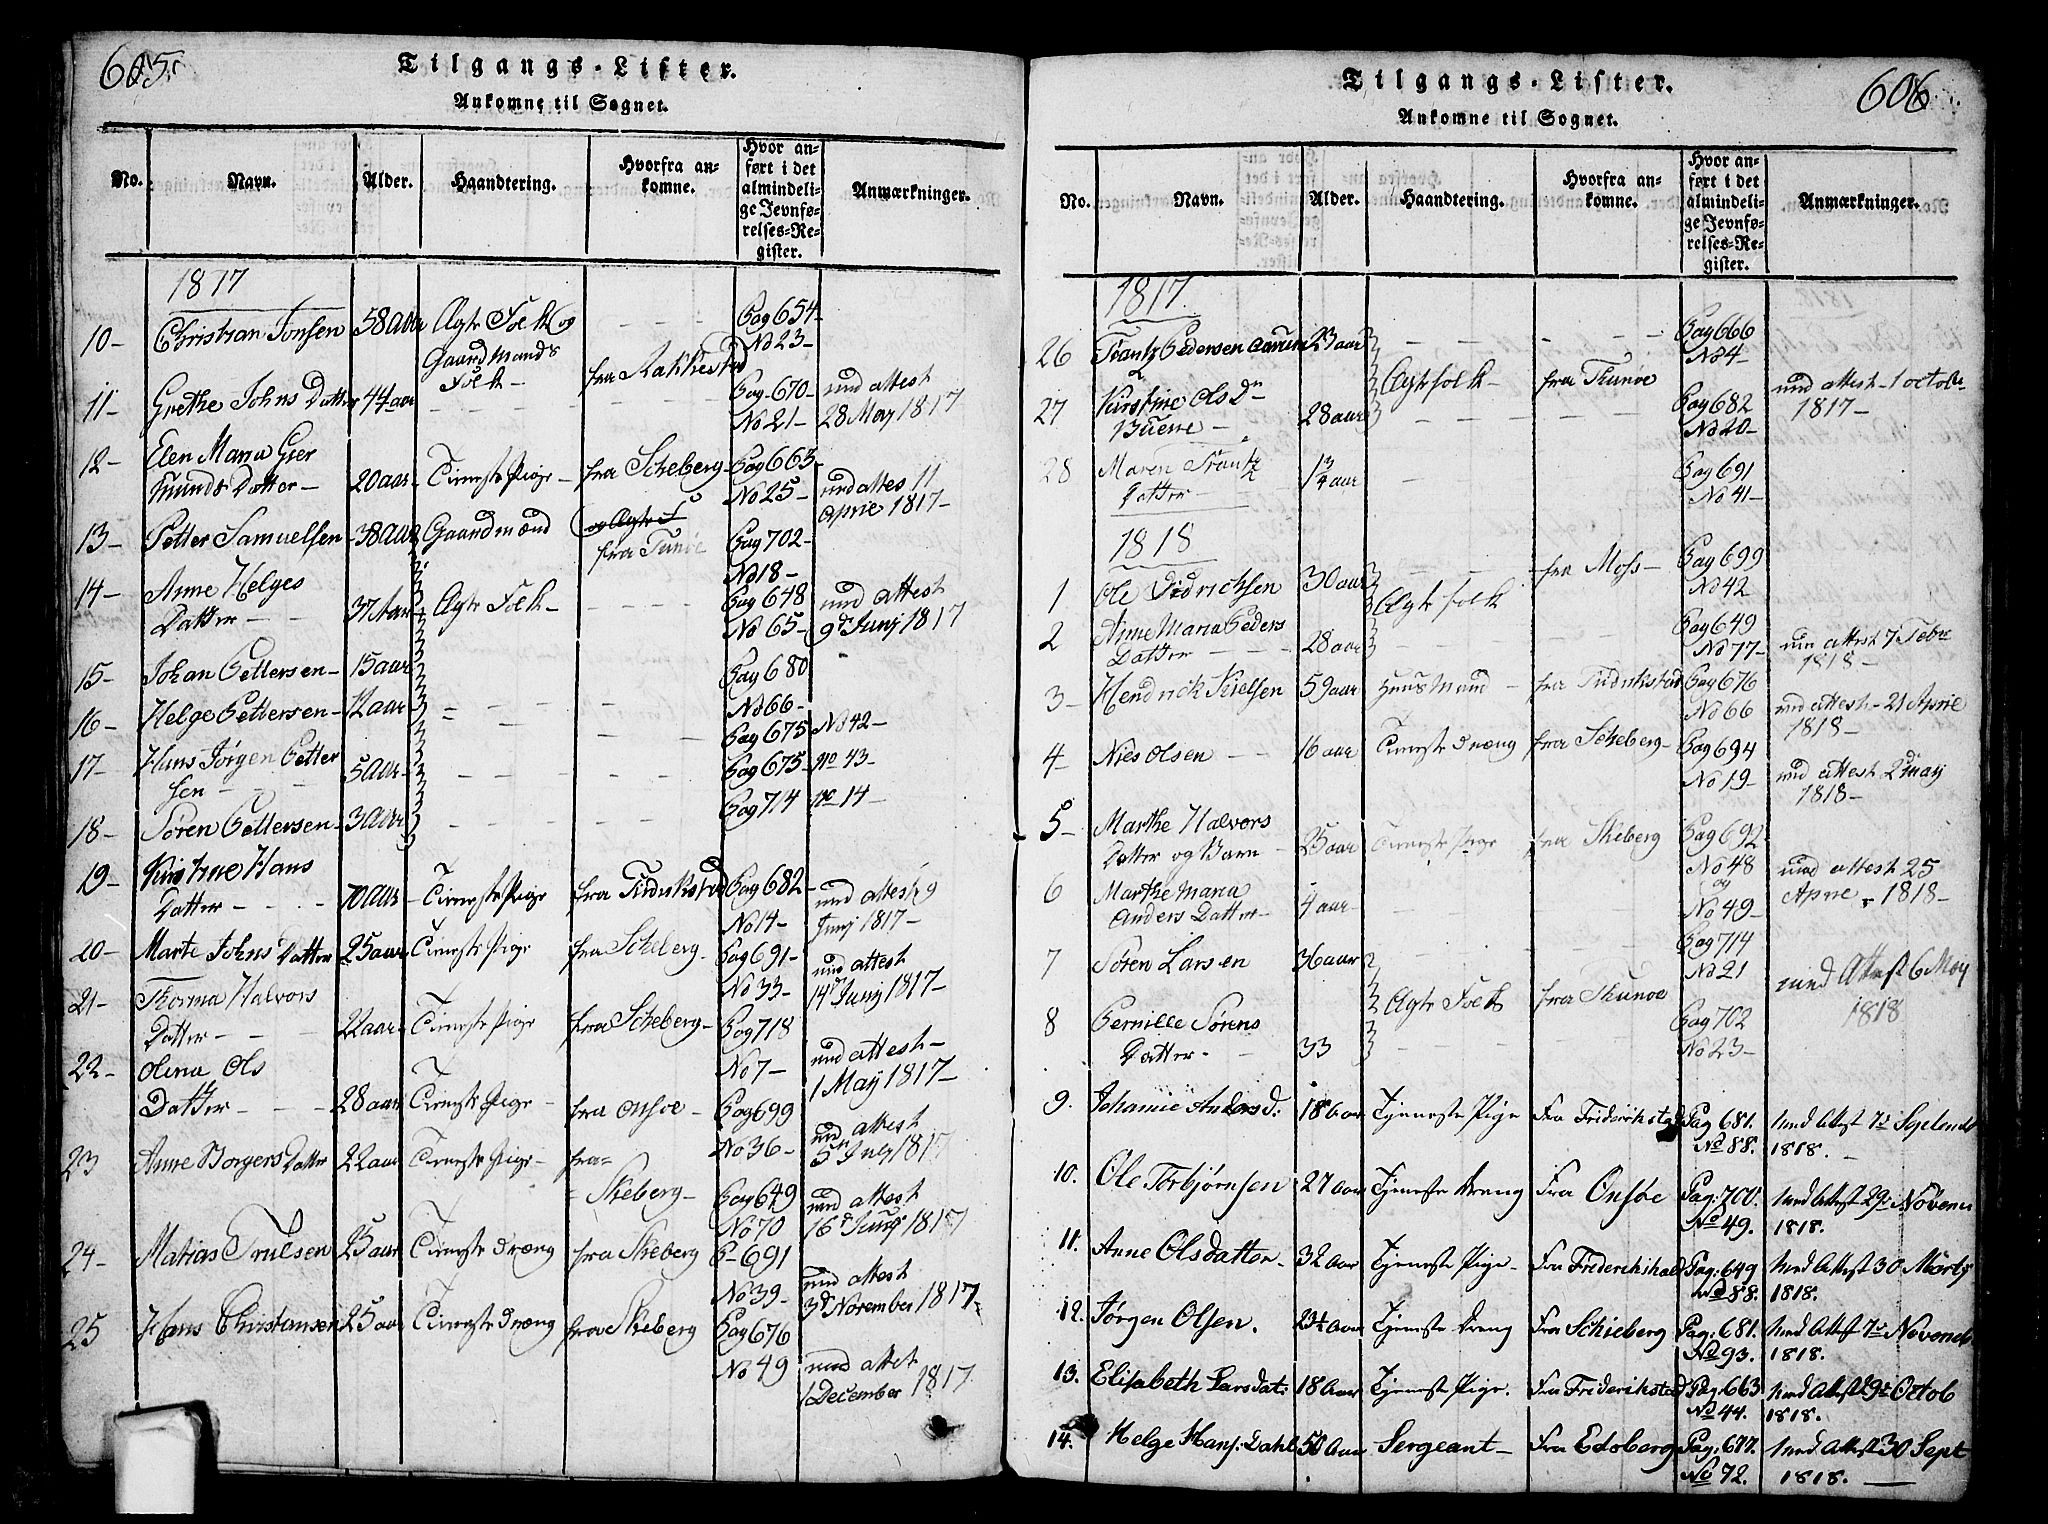 605
Tilgangs-Lister.
Ankomne til Sognet.
No. Navn. Alder. Haandtering. Hvorfra ankomne. Hvor anført i det almindelige Jevnførelses-Register. Anmærkninger.
1817
10- Christian Jonsen 58 Aar Ægte Folk og Gaardmands Folk- - - - Pag 654- No 23-
11- Grethe Johns Datter 44 aar - - - fra Rakkestad Pag 670- No 21- med attest 28 May 1817
12- Elen Maria Gier Smunds Datter- 20 aar- Tieneste Pige- fra Scheberg- Pag 663- No 25- med attes 11 April 1817-
13- Petter Samuelsen- 38 Aar Gaardmænd fra Tunøe Pag 702- No 18-
14- Anne Helges Datter- - 37 Aar- Ægte Folk- - - - Pag 648 No 65- med attest 9d Junj 1817
15- Johan Pettersen- 15 aar Pag 680 No 66-
16- Helge Pettersen- 12 aar - - - Pag 675 No 42-
17- Hans Jørgen Petter sen- - - 5 Aar- - - - Pag 675- no 43-
18- Søren Pettersen- 3 Aar - - - Pag 714 no 14-
19- Kirstine Hans Datter- - - 70 Aar- Tieneste Pige fra Fridrikstad Pag 682- No 14- med attest 9 Junj 1817-
20- Marte Johns Datter 25 aar Tieneste Pige fra Scheberg- Pag 691- No 33- med attest 14d Junj 1817-
21- Thorma Halvors Datter- - 22 aar- Tieneste Pige fra Scheberg- Pag 718 No 7- med attest- 1 May 1817-
22- Olena Ols Datter- - - 28 aar Tieneste Pige- fra Onsøe- Pag 699 No 36- med attest 5 July 1817
23 Anne Borgers Datter 22 aar Tieneste Pige- fra- Skeberg- Pag 649 No 70 med attest 16d Junj 1817
24- Matias Truelsen 25 aar Tieneste dræng fra Skeberg P- 691 No 39- med attest 3d November 1817-
25 Hans Christansen 25 aar Tieneste dræng fra Skeberg Pag 676 No 49 med attest 1 December 1817
606
Tilgangs-Lister.
Ankomne til Sognet.
No. Navn. Alder. Haandtering. Hvorfra ankomne. Hvor anført i det almindelige Jevnførelses-Register. Anmærkninger.
1817
26 Frantz Pedersen 23 aar - - - Pag 666 No 4-
27 Kirstine Ols Dr 28 aar Ægtefolk- fra Thunøe Pag 682 No 20- med attest- 1 octobe 1817-
28 Maren Frantz Datter- 1 3/4 aar - Pag 691 No 41-
1818
1 Ole Didrichsen 30 aar Ægte folk fra Moss- Pag 699 No 42
2 Anne Maria Peders Datter- - - 28 aar - - - Pag 649 No 77- med attest 7 Febr 1818-
3- Hendrick Nielsen 59 aar Huusmand- fra Fridrikstad Pag 676 No 66 med attest- 21 Aprie 1818-
4- Nies Olsen- - 16 aar Tieneste dræng fra Scheberg- Pag 694 No 19- med attest 2d may 1818-
5- Marthe Halvors Datter og Barn- 25 aar Tieneste Pige fra Skeberg Pag 692 No 48 og
6 Marthe Maria Anders Datter- 4 aar- - - - No 49- med attest 25 Aprie 1818-
7 Søren Larsen 36 aar - - Pag 714 No 21 med Attest 6 May 1818
8 Pernille Sørens Datter- - 33 Ægte Folk fra Thunøe Pag 702 No 23-
9. Johanne Anders D: 18 Aar Tjeneste Pige Fra Frideriksta Pag 681. No 88. Med Attest 7d Septemb 1818.-
10. Ole Torbjørnsen 27 aar Tjeneste dreng Fra Onsøe Pag: 700. No 49. Med Attest 29d Novem 1818.
11. Anne Olsdatter. 32 aar Tjeneste Pige- Fra Frederikshald Pag: 649 No 88. Med Attest 30 Marty 1818.
12. Jørgen Olsen. 24 Aar Tjeneste dreng Fra Schieberg Pag: 681. No 93. Med Attest 7d Novemb 1818.
13. Elisabeth Larsdat: 18 Aar Tjeneste Pige. Fra Frederikstad Pag: 663 No 44. Med Attest 29d Octob 1818.
14. Helge Hans: Dahl 50 Aar Sergeant- Fra Edsberg Pag: 677. No 72. Med Attest 30 Sept 1818.-